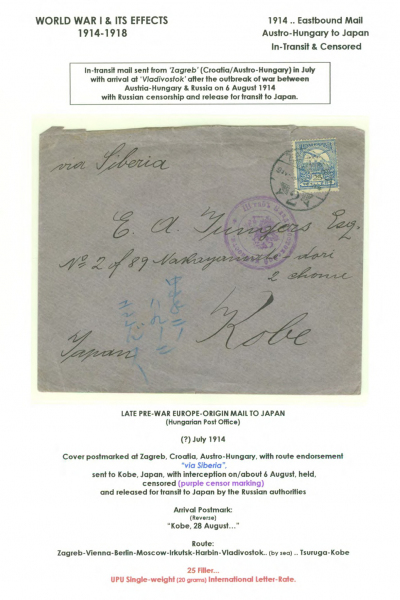 WORLD WAR I & ITS EFFECTS
1914-1918
1914 .. Eastbound Mail
Austro-Hungary to Japan
In-Transit & Censored
In-transit mail sent from 'Zagreb' (Croatia/Austro-Hungary) in July
with arrival at 'Vladivostok' after the outbreak of war between
Austria-Hungary & Russia on 6 August 1914
with Russian censorship and release for transit to Japan.
via Siberia
E. A. Esq
No 2 of 89 Nakayamate dori
2 chome
Kobe
Japan
LATE PRE-WAR EUROPE-ORIGIN MAIL TO JAPAN
(Hungarian Post Office)
(?) July 1914
Cover postmarked at Zagreb, Croatia, Austro-Hungary, with route endorsement
"via Siberia",
sent to Kobe, Japan, with interception on/about 6 August, held,
censored (purple censor marking)
and released for transit to Japan by the Russian authorities
Arrival Postmark:
(Reverse)
"Kobe, 28 August…"
Route:
Zagreb-Vienna-Berlin-Moscow-Irkutsk-Harbin-Vladivostok.. (by sea) .. Tsuruga-Kobe
25 Filler...
UPU Single-weight (20 grams) International Letter-Rate.